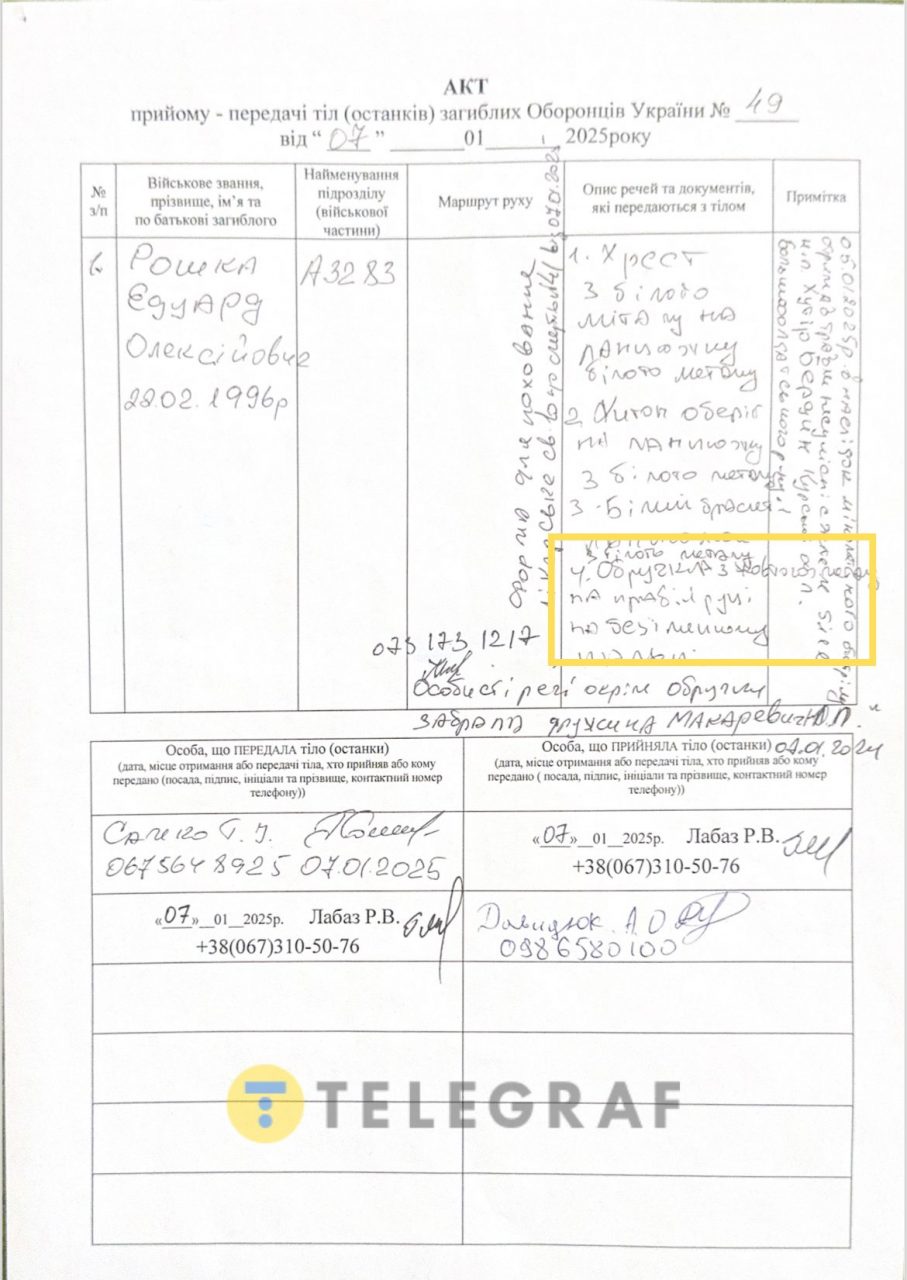 АКТ
прийому - передачі тіл (останків) загиблих Оборонців України № 49
від “ 07 ” 01 2025року
№ з/п
Військове звання, прізвище, ім’я та по батькові загиблого
Найменування підрозділу (військової частини)
Маршрут руху
Опис речей та документів, які передаються з тілом
Примітка
Рошка
Едуард
Олексійович
22.02.1996р
А3283
Форма для поховання
1. Хрест
з білого
міталу на
ланцюжку
білого металу
2. Житон оберіг
на ланцюжку
з білого металу
3. Білий браслет
з білого металу
4. Обручка з жовтого металу
на правій руці
на безіменному
пальці
05.01.2025р. в наслідок мінометного обстрілу
н.п. Хутір Бердин Курської обл.
073 173 1217
Особисті речі окрім обручки
забрала дружина Макаревич О.П.
07.01.2024
Особа, що ПЕРЕДАЛА тіло (останки)
(дата, місце отримання або передачі тіла, хто прийняв або кому
передано (посада, підпис, ініціали та прізвище, контактний номер
телефону))
Особа, що ПРИЙНЯЛА тіло (останки)
(дата, місце отримання або передачі тіла, хто прийняв або кому
передано ( посада, підпис, ініціали та прізвище, контактний номер
телефону))
0675648925 07.01.2025
«07»__01__2025р. Лабаз Р.В.
+38(067)310-50-76
«07»__01__2025р. Лабаз Р.В.
+38(067)310-50-76
Давидюк А.О
0986580100
TELEGRAF